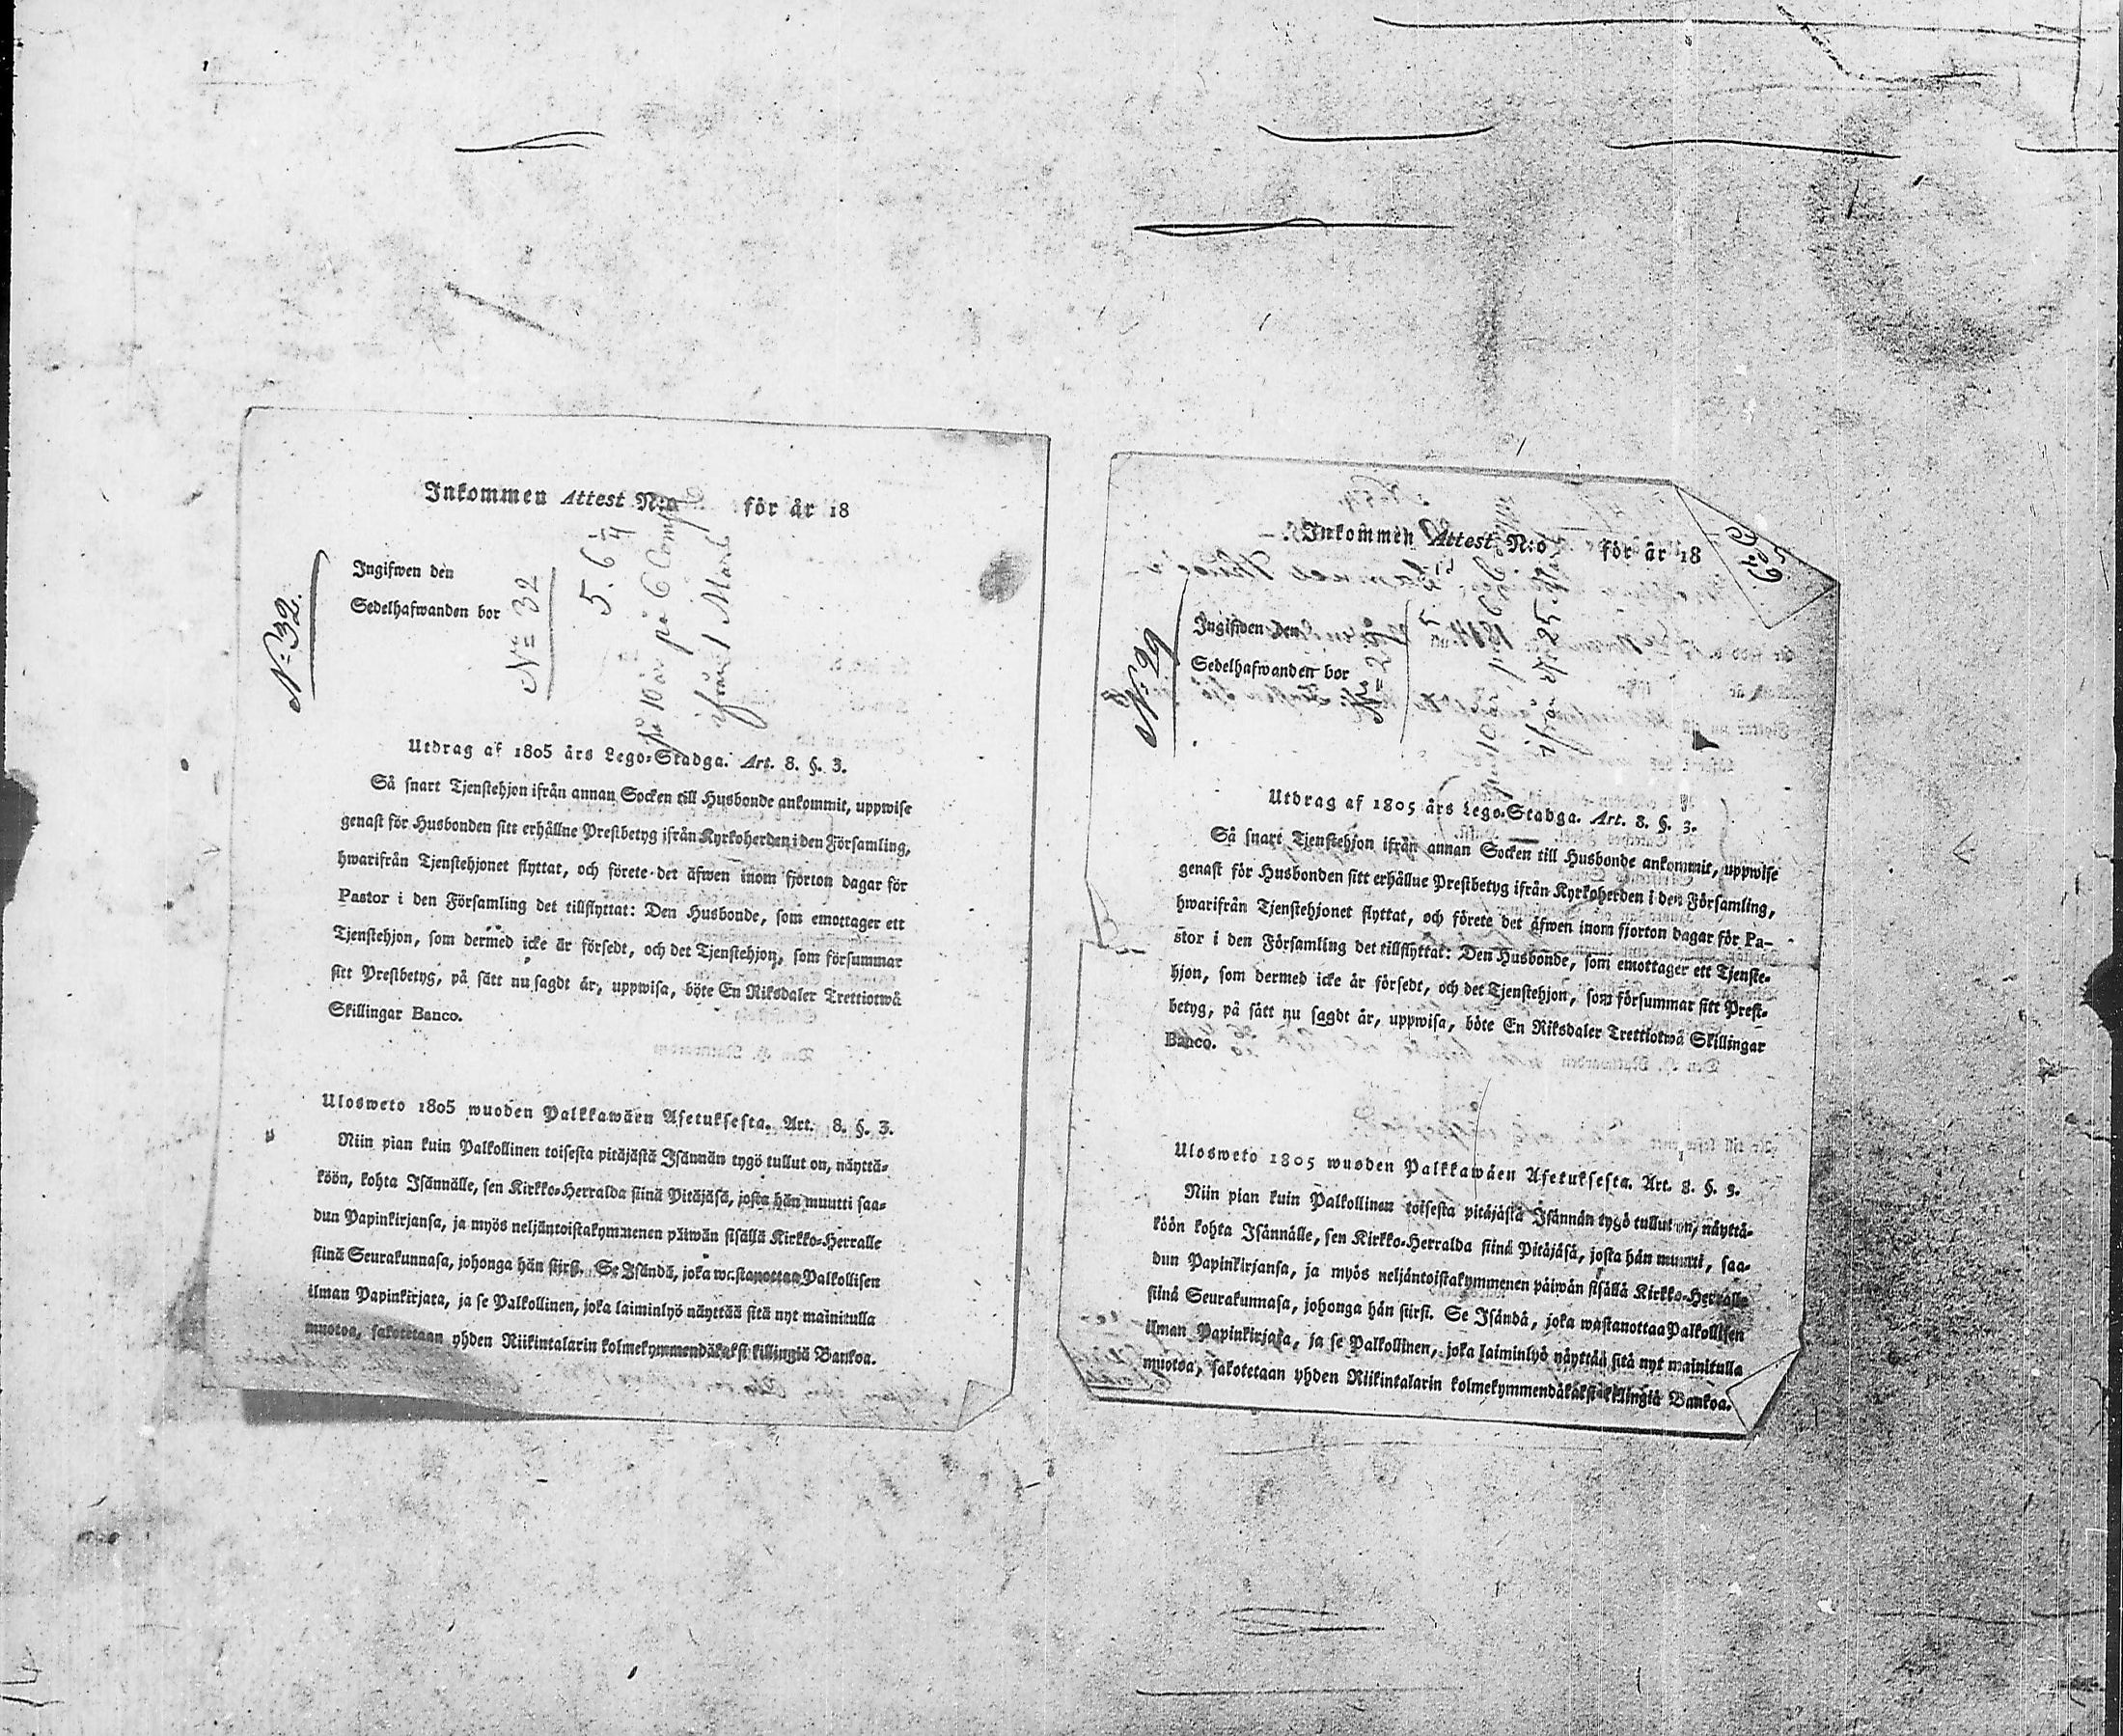 Inkommen Attest N:o för år 18
Ingifwen den
Sedelhafwanden bor
N:o 32.
N:o 32
5. 6
på 10 år på 6
ifrån 1 Mars
Utdrag af 1805 års Lego-Stadga. Art. 8. §. 3.
Så snart Tjenstehjon ifrån annan Socken till Husbonde ankommit, uppwise
genast för Husbonden sitt erhållne Prestbetyg ifrån Kyrkoherden i den Församling,
hwarifrån Tjenstehjonet flyttat, och förete det äfwen inom fjorton dagar för
Pastor i den Församling det tillflyttat: Den Husbonde, som emottager ett
Tjenstehjon, som dermed icke är försedt, och det Tjenstehjon, som försummar
sitt Prestbetyg, på sätt nu sagdt är, uppwisa, böte En Riksdaler Trettiotwå
Skillingar Banco.
Ulosweto 1805 wuoden Palkkawäen Asetuksesta. Art. 8. §. 3.
Niin pian kuin Palkollinen toisesta pitäjästä Isännän tygö tullut on, näyttä-
köön, kohta Isännälle, sen Kirkko-Herralda siinä Pitäjäsä, josta hän muutti saa-
dun Papinkirjansa, ja myös neljäntoistakymmenen päiwän sisällä Kirkko-Herralle
siinä Seurakunnasa, johonga hän siirsi. Se Isändä, joka wastanottaa Palkollisen
ilman Papinkirjata, ja se Palkollinen, joka laiminlyö näyttää sitä nyt mainitulla
muotoa, sakotetaan yhden Riikintalarin kolmekymmendäkaksi killingiä Bankoa.
Inkommen Attest N:o för år 18
Ingifwen den
Sedelhafwanden bor
N:o 29
N:o 29
ifrån 25
Utdrag af 1805 års Lego-Stadga. Art. 8. §. 3.
Så snart Tjenstehjon ifrån annan Socken till Husbonde ankommit, uppwise
genast för Husbonden sitt erhållne Prestbetyg ifrån Kyrkoherden i den Församling,
hwarifrån Tjenstehjonet flyttat, och förete det äfwen inom fjorton dagar för Pa-
stor i den Församling det tillflyttat: Den Husbonde, som emottager ett Tjenste-
hjon, som dermed icke är försedt, och det Tjenstehjon, som försummar sitt Prest-
betyg, på sätt nu sagdt är, uppwisa, böte En Riksdaler Trettiotwå Skillingar
Banco.
Ulosweto 1805 wuoden Palkkawäen Asetuksesta. Art. 8. §. 3.
Niin pian kuin Palkollinen toisesta pitäjästä Isännän tygö tullut on, näyttä-
köön kohta Isännälle, sen Kirkko-Herralda siinä Pitäjäsä, josta hän muutti, saa-
dun Papinkirjansa, ja myös neljäntoistakymmenen päiwän sisällä Kirkko-Herralle
siinä Seurakunnasa, johonga hän siirsi. Se Isändä, joka wastanottaa Palkollisen
ilman Papinkirjata, ja se Palkollinen, joka laiminlyö näyttää sitä nyt mainitulla
muotoa, sakotetaan yhden Riikintalarin kolmekymmendäkaksi killingiä Bankoa.